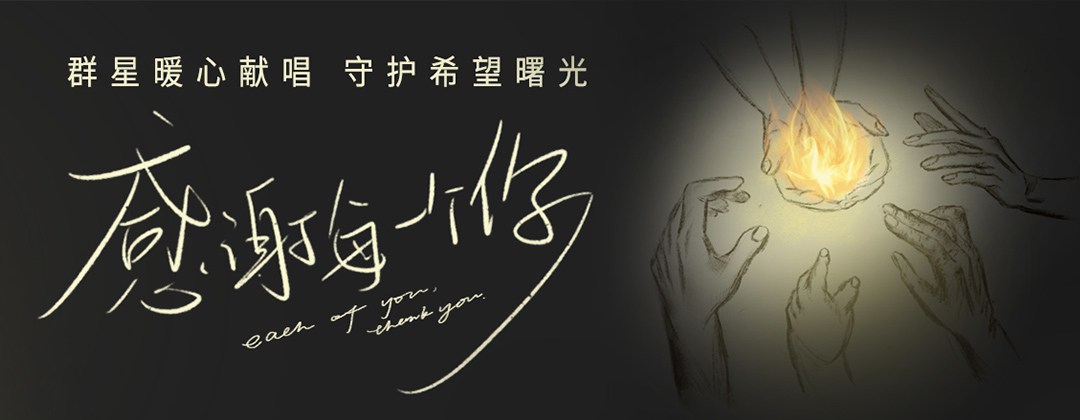 群星暖心献唱 守护希望曙光
感谢每一个你
each of you,
thank you.